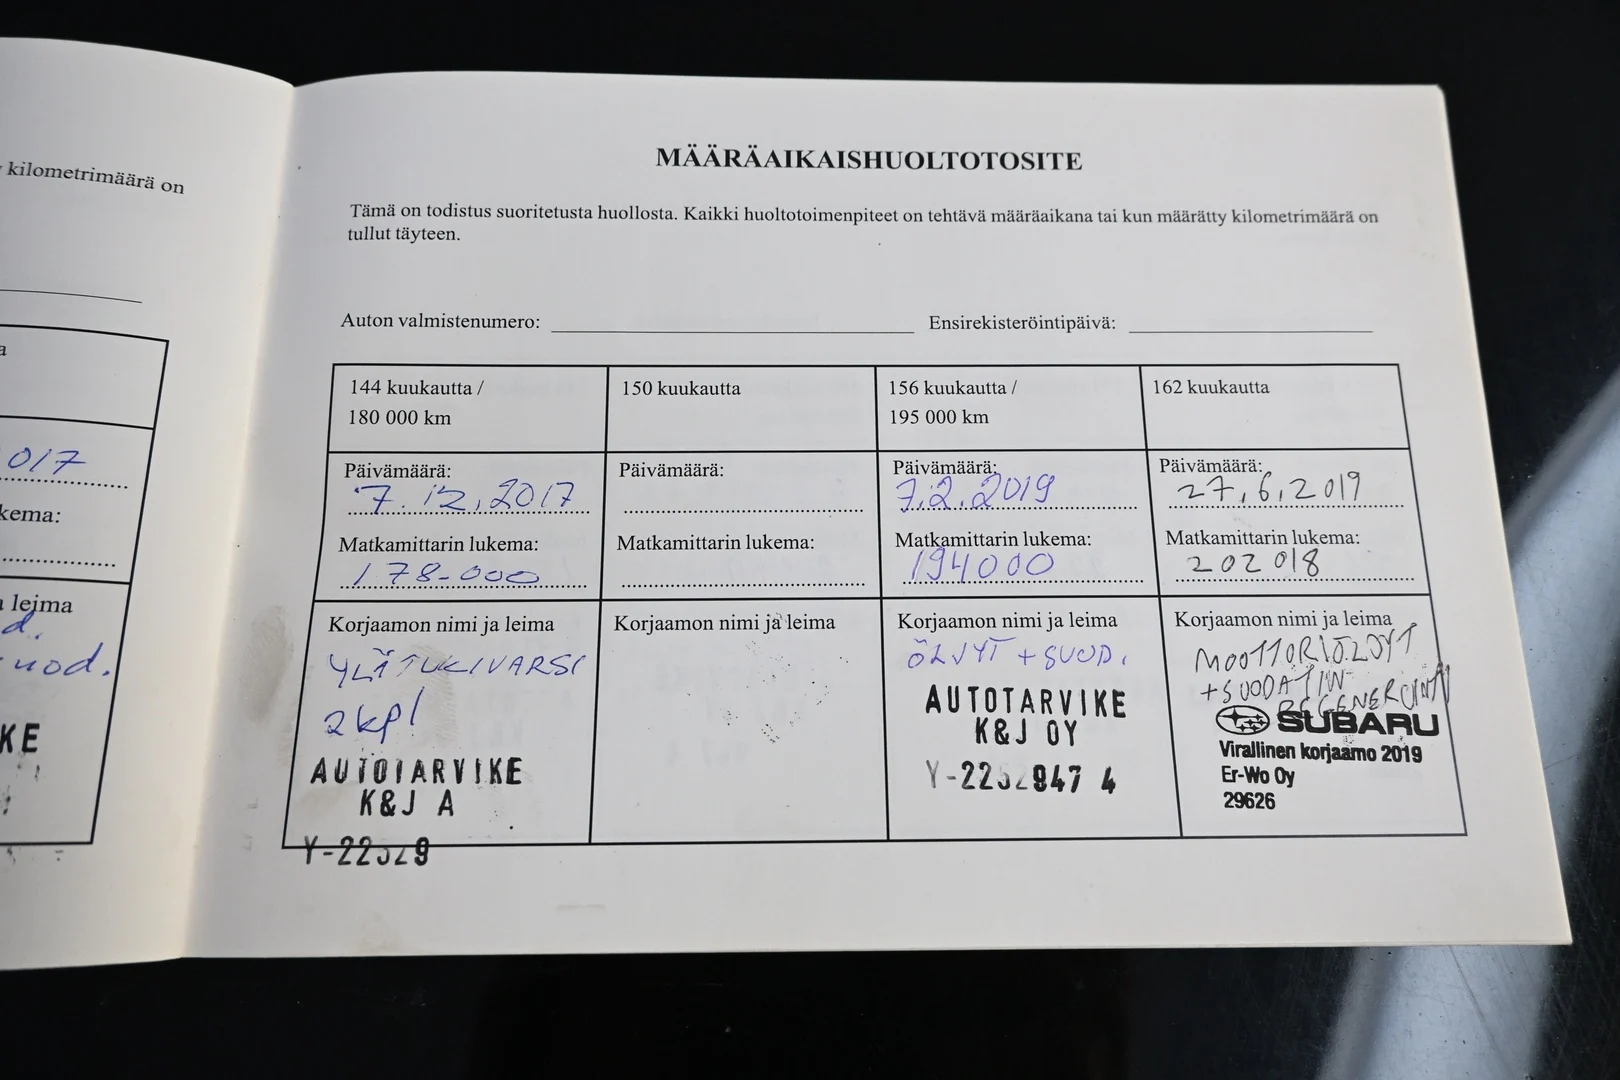 kilometrimäärä on
017
kema:
leima
d.
uod.
KE
MÄÄRÄAIKAISHUOLTOTOSITE
Tämä on todistus suoritetusta huollosta. Kaikki huoltotoimenpiteet on tehtävä määräaikana tai kun määrätty kilometrimäärä on
tullut täyteen.
Auton valmistenumero:
Ensirekisteröintipäivä:
144 kuukautta /
180 000 km
Päivämäärä:
7.12.2017
Matkamittarin lukema:
178-000
Korjaamon nimi ja leima
YLÄTUKIVARSI
2kpl
AUTOTARVIKE
K&J A
150 kuukautta
Päivämäärä:
Matkamittarin lukema:
Korjaamon nimi ja leima
156 kuukautta /
195 000 km
Päivämäärä:
7.2.2019
Matkamittarin lukema:
194000
Korjaamon nimi ja leima
ÖLJYT + SUOD.
AUTOTARVIKE
K&J OY
Y-2252947 4
162 kuukautta
Päivämäärä:
27.6.2019
Matkamittarin lukema:
202018
Korjaamon nimi ja leima
MOOTTORIÖLJYT
+SUODATIN
REGENEROINTI
SUBARU
Virallinen korjaamo 2019
Er-Wo Oy
29626